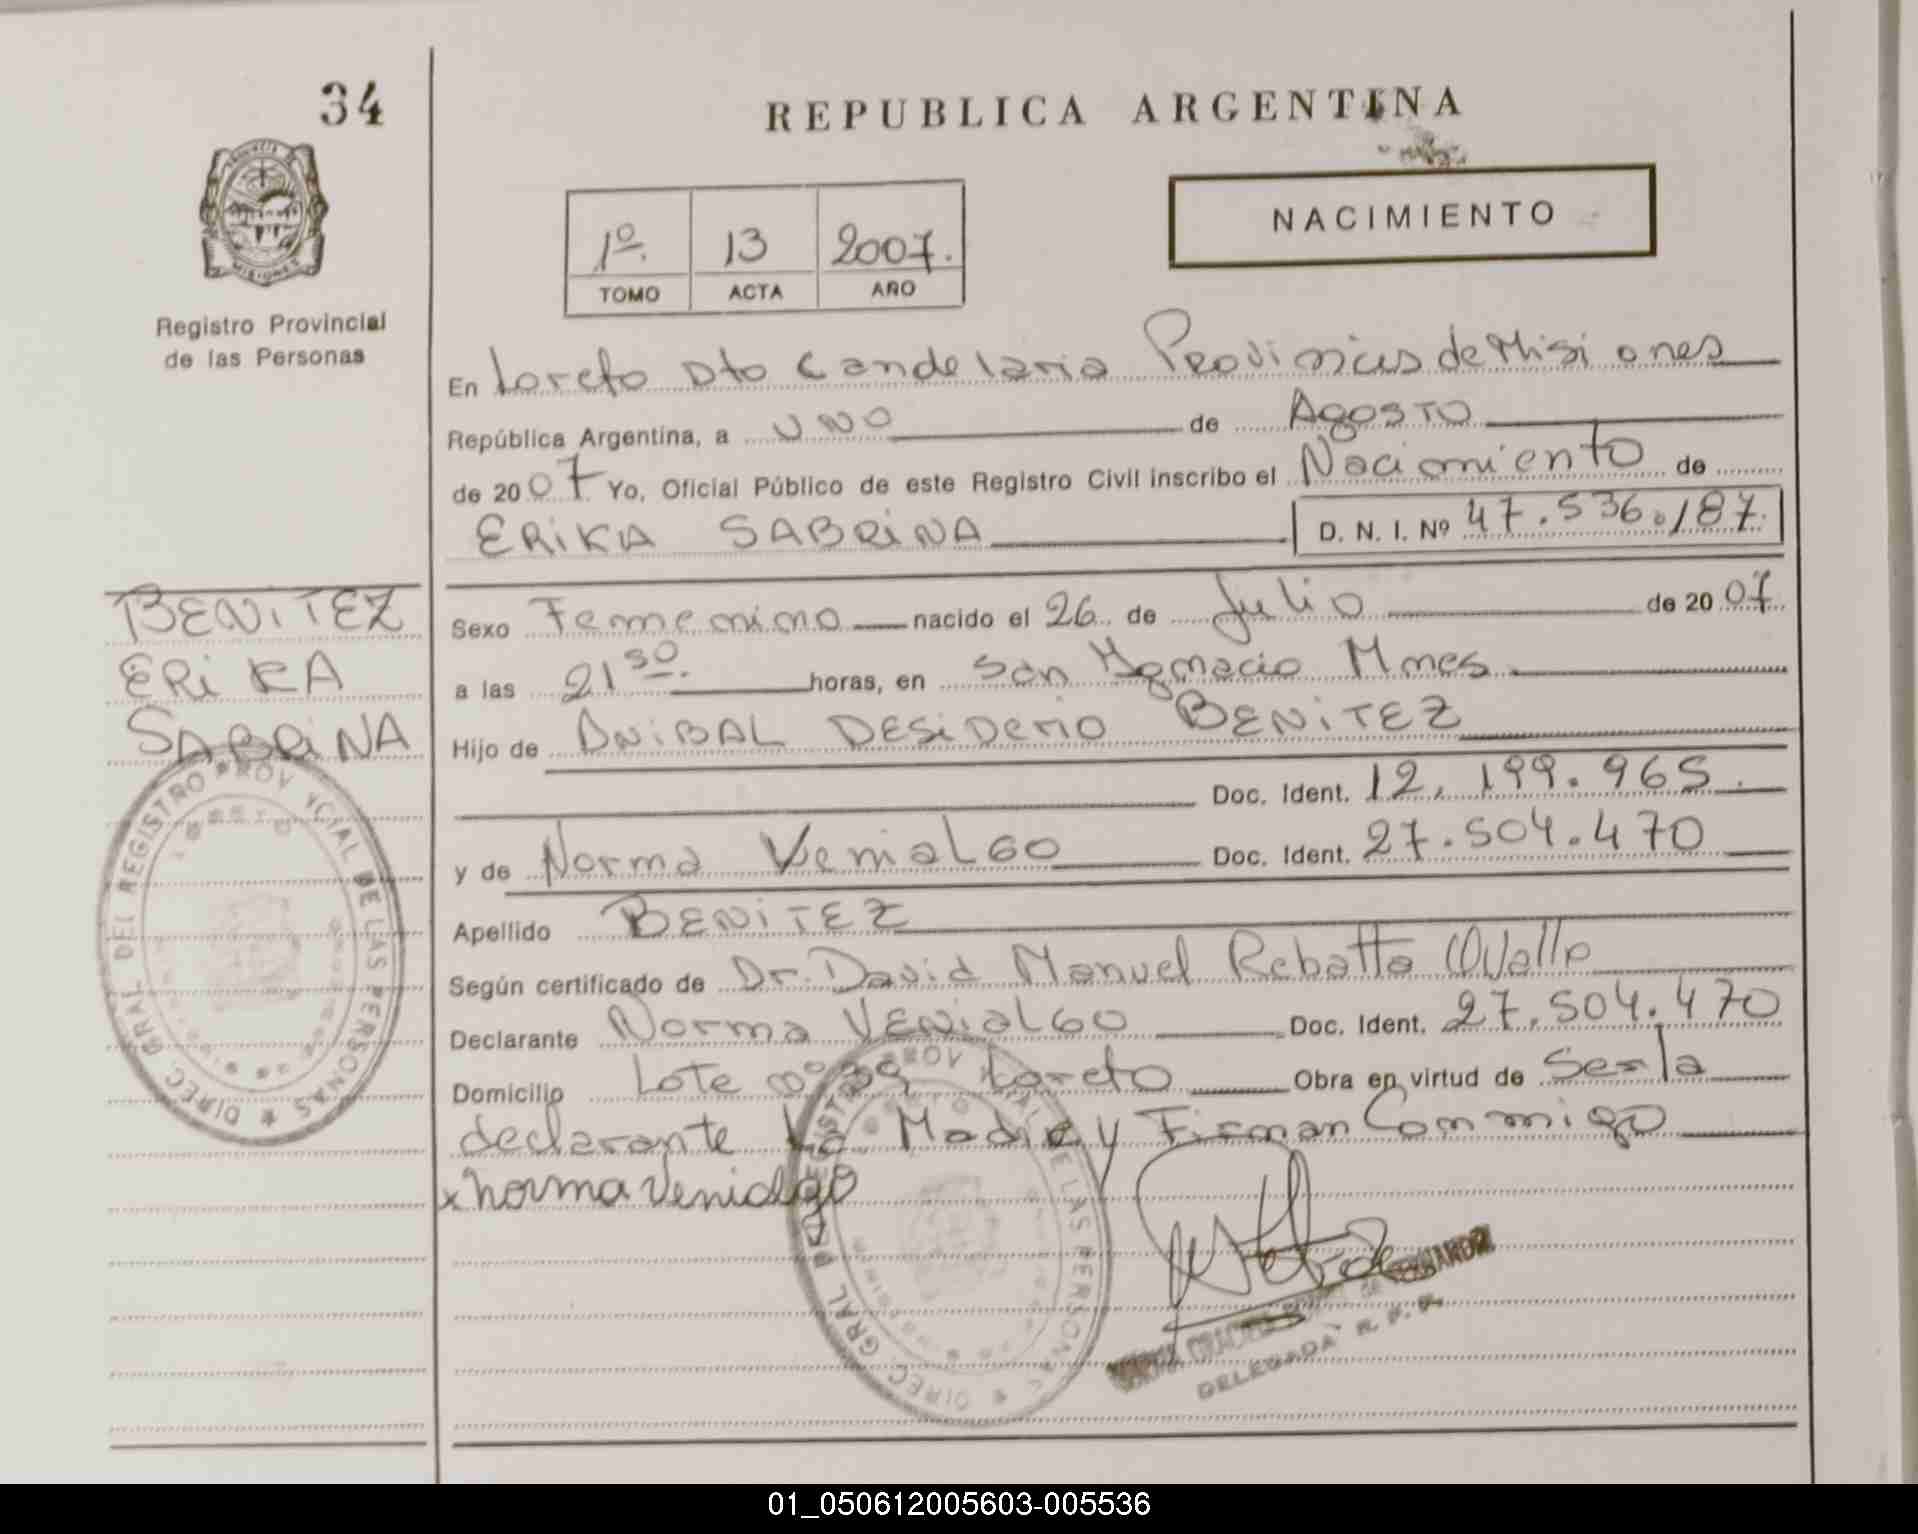 34
REPUBLICA ARGENTINA
NACIMIENTO
1º. 13 2007.
TOMO ACTA AÑO
Registro Provincial
de las Personas
En Loreto Dto Candelaria Provincias de Misiones
República Argentina, a UNO de Agosto
de 2007 Yo, Oficial Público de este Registro Civil inscribo el Nacimiento de
ERIKA SABRINA D. N. I. Nº 47.536.187.
BENITEZ
ERIKA
SABRINA
Sexo Femenino nacido el 26 de Julio de 2007.
a las 21 30. horas, en San Ygnacio Mnes.
Hijo de ANIBAL DESIDERIO BENITEZ
Doc. Ident. 12.199.965.
y de Norma Venialgo Doc. Ident. 27.504.470
Apellido BENITEZ
Según certificado de Dr. David Manuel Rebatta Ovalle
Declarante Norma VENIALGO Doc. Ident. 27.504.470
Domicilio Lote nº 39 Loreto Obra en virtud de Ser la
declarante La Madre y Firman Conmigo
x norma Venialgo
DIREC. GRAL DEL REGISTRO PROVINCIAL DE LAS PERSONAS
DIREC. GRAL DEL REGISTRO PROVINCIAL DE LAS PERSONAS
DELEGADA R. P. P.
01_050612005603-005536